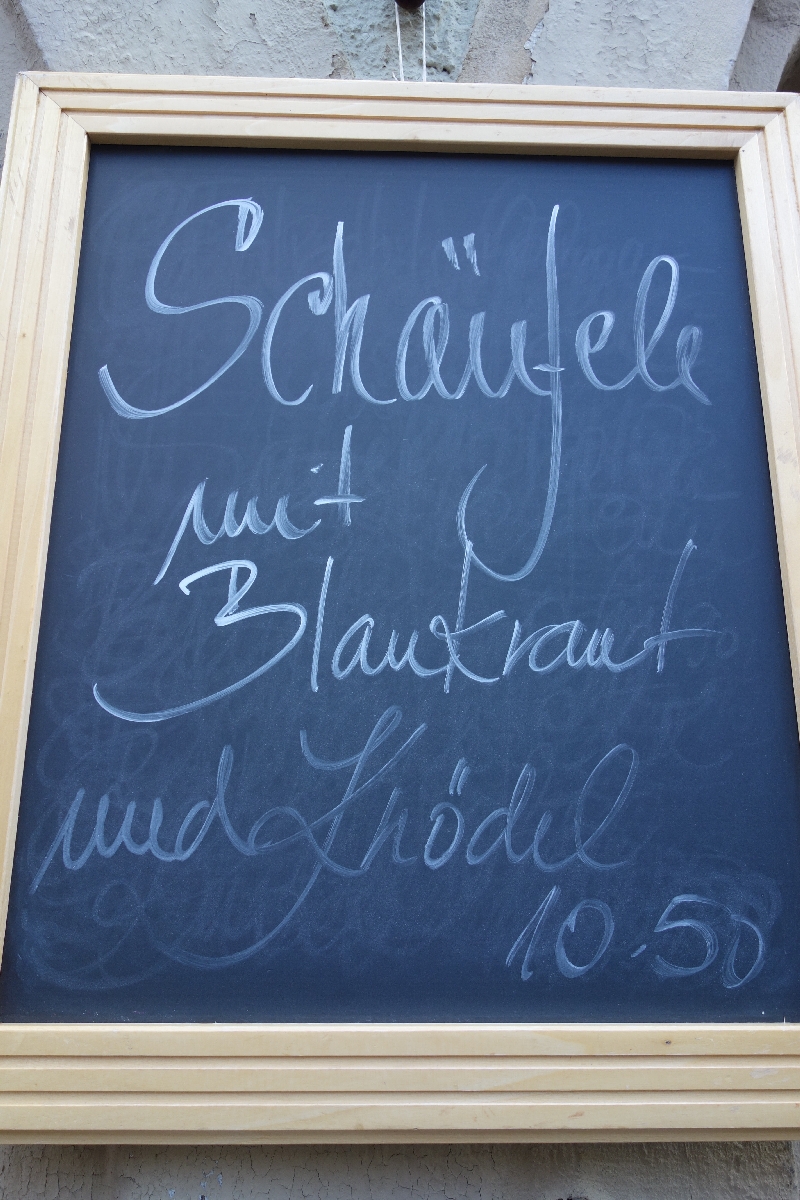 Schäufele
mit
Blaukraut
und Knödel
10.50